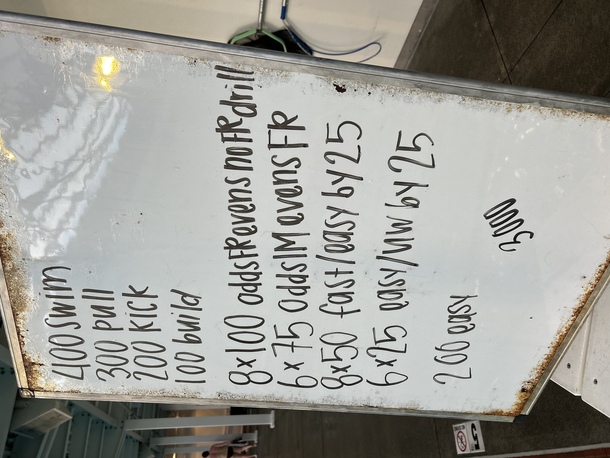 400 swim
300 pull
200 kick
100 build
8x100 odds FR evens no FR drill
6x75 odds IM evens FR
8x50 fast/easy by 25
6x25 easy/UW by 25
200 easy
3000